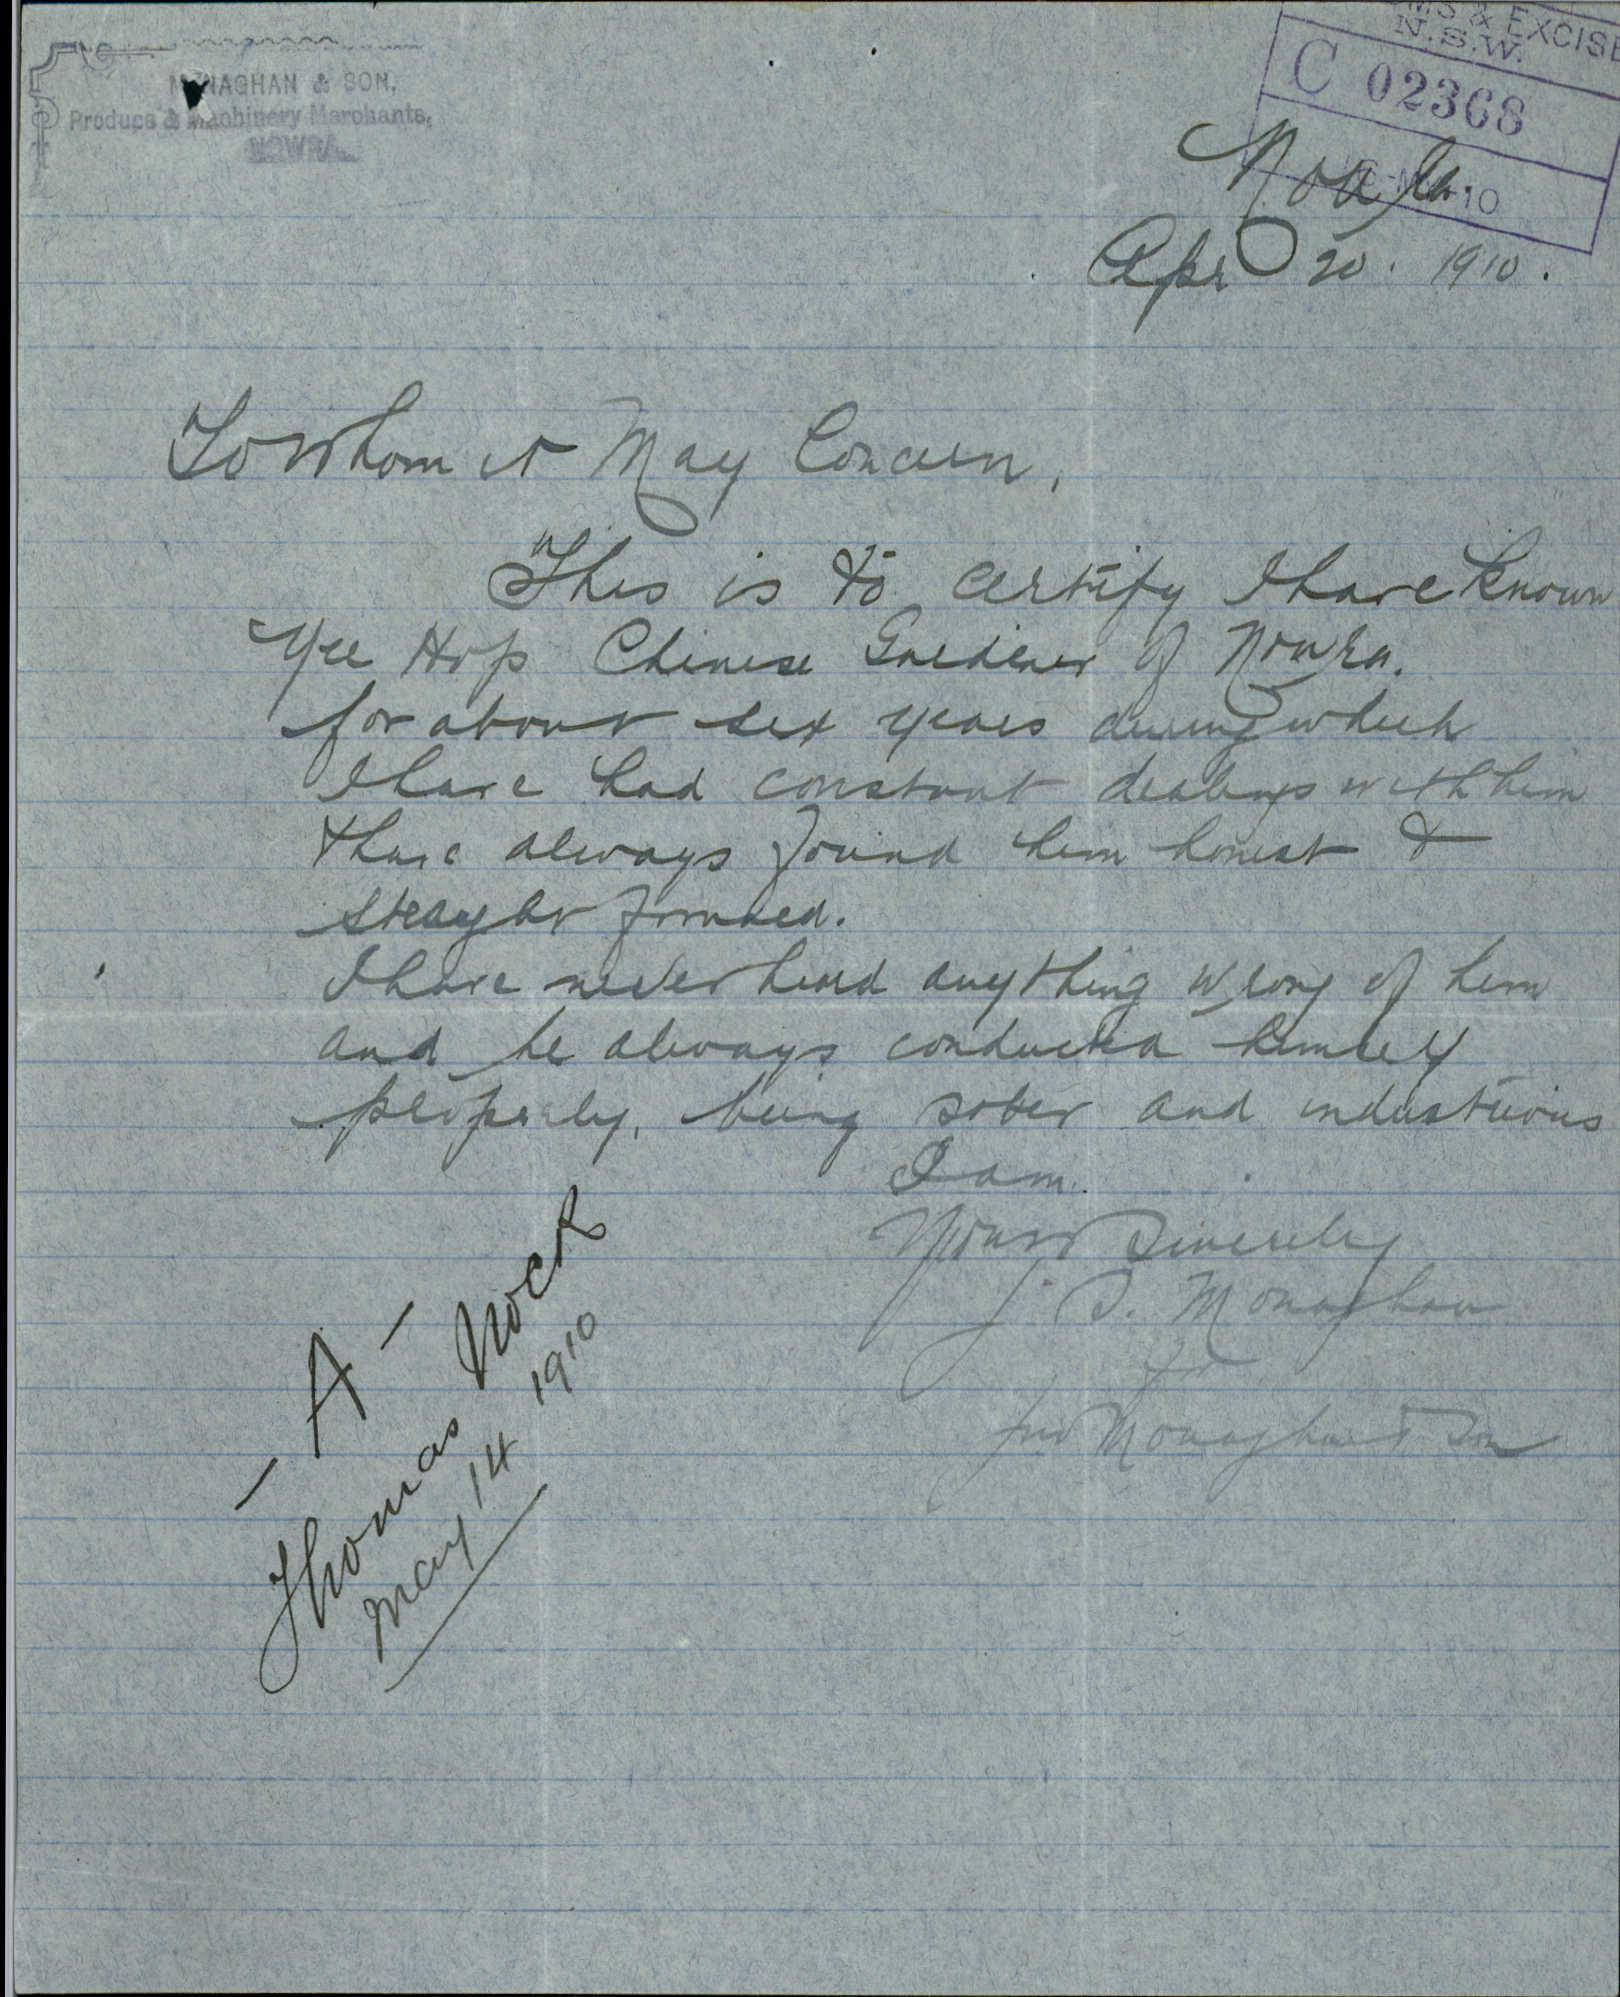 MONAGHAN & SON,
Produce & Machinery Merchants,
NOWRA
CUSTOMS & EXCISE
N.S.W.
C 02368
10
Nowra
Apr 20. 1910.
To Whom it May Concern,
This is to certify I have known
Yee Hop Chinese Gardener of Nowra.
for about six years during which
I have had constant dealings with him
& have always found him honest &
straight forward.
I have never heard anything wrong of him
and he always conducted himself
properly, being sober and industrious
I am
Yours Sincerely
J. S. Monaghan
for
Jno Monaghan & Son
- A -
Thomas Nock
May 14 1910